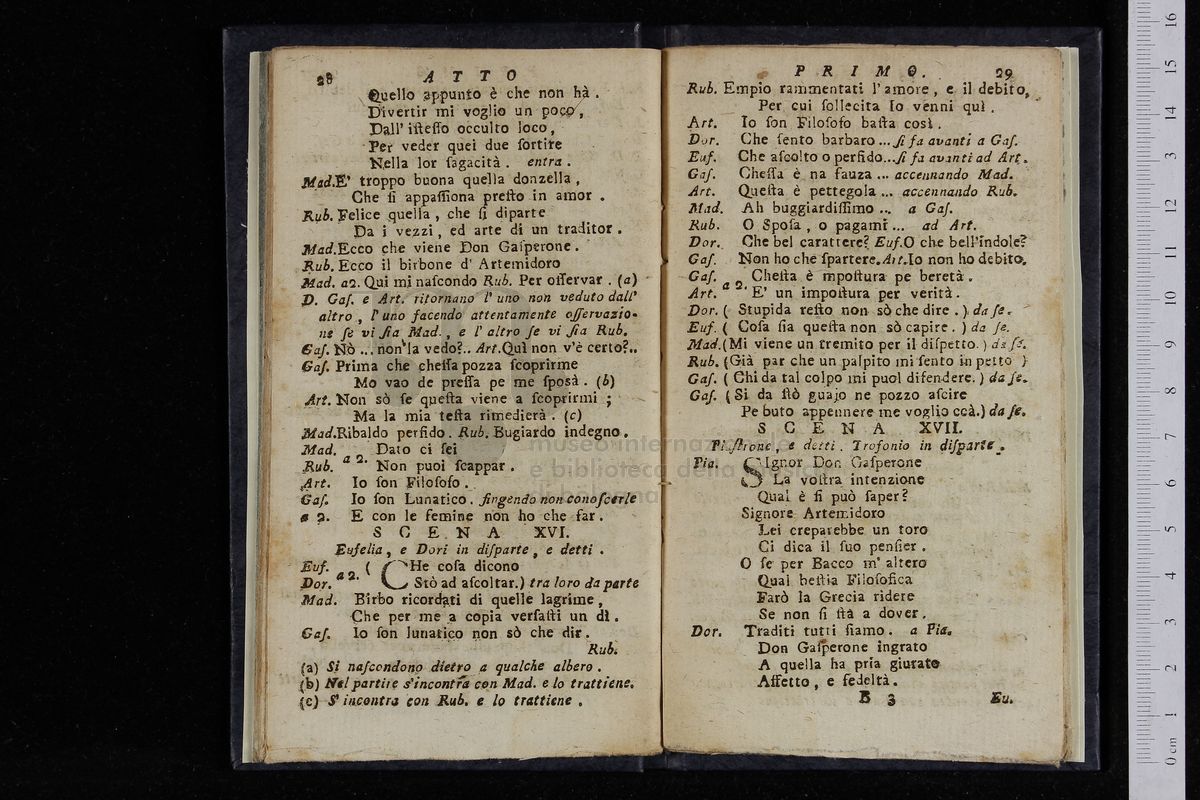 28 ATTO
Quello appunto è che non hà.
Divertir mi voglio un poco,
Dall' iſteſſo occulto loco,
Per veder quei due ſortire
Nella lor ſagacità. entra.
Mad. E' troppo buona quella donzella,
Che ſi appaſſiona preſto in amor.
Rub. Felice quella, che ſi diparte
Da i vezzi, ed arte di un traditor.
Mad. Ecco che viene Don Gaſperone.
Rub. Ecco il birbone d' Artemidoro
Mad. a2. Qui mi naſcondo Rub. Per oſſervar. (a)
D. Gaſ. e Art. ritornano l' uno non veduto dall'
altro, l' uno facendo attentamente oſſervazio-
ne ſe vi ſia Mad., e l' altro ſe vi ſia Rub.
Gaſ. Nò ... non la vedo?.. Art. Quì non v'è certo?..
Gaſ. Prima che cheſſa pozza ſcoprirme
Mo vao de preſſa pe me ſposà. (b)
Art. Non sò ſe queſta viene a ſcoprirmi;
Ma la mia teſta rimedierà. (c)
Mad. Ribaldo perfido. Rub. Bugiardo indegno.
Mad. a 2. Dato ci ſei
Rub. Non puoi ſcappar.
Art. Io ſon Filoſofo.
Gaſ. Io ſon Lunatico. fingendo non conoſcerle
a 2. E con le femine non ho che far.
SCENA XVI.
Eufelia, e Dori in diſparte, e detti.
Euf. a 2. ( CHe coſa dicono
Dor. Stò ad aſcoltar.) tra loro da parte
Mad. Birbo ricordati di quelle lagrime,
Che per me a copia verſaſti un dì.
Gaſ. Io ſon lunatico non sò che dir.
Rub.
(a) Si naſcondono dietro a qualche albero.
(b) Nel partire s'incontra con Mad. e lo trattiene.
(c) S' incontra con Rub. e lo trattiene.
PRIMO. 29
Rub. Empio rammentati l'amore, e il debito,
Per cui ſollecita Io venni quì.
Art. Io ſon Filoſofo baſta così.
Dor. Che ſento barbaro ... ſi fa avanti a Gaſ.
Euf. Che aſcolto o perfido... ſi fa avanti ad Art.
Gaſ. Cheſſa è na fauza ... accennando Mad.
Art. Queſta è pettegola ... accennando Rub.
Mad. Ah buggiardiſſimo ... a Gaſ.
Rub. O Spoſa, o pagami ... ad Art.
Dor. Che bel carattere? Euf. O che bell'indole?
Gaſ. Non ho che ſpartere. Art. Io non ho debito.
Gaſ. a 2. Cheſta è mpoſtura pe beretà.
Art. E' un impoſtura per verità.
Dor. ( Stupida reſto non sò che dire. ) da ſe.
Euf. ( Coſa ſia queſta non sò capire. ) da ſe.
Mad. (Mi viene un tremito per il diſpetto.) da ſe.
Rub. (Già par che un palpito mi ſento in petto )
Gaſ. ( Chi da tal colpo mi puol difendere. ) da ſe.
Gaſ. ( Si da ſtò guajo ne pozzo aſcire
Pe buto appennere me voglio ccà.) da ſe.
SCENA XVII.
Piaſtrone, e detti. Trofonio in diſparte.
Pia. SIgnor Don Gaſperone
La voſtra intenzione
Qual è ſi può ſaper?
Signore Artemidoro
Lei creparebbe un toro
Ci dica il ſuo penſier.
O ſe per Bacco m' altero
Qual beſtia Filoſofica
Farò la Grecia ridere
Se non ſi ſtà a dover.
Dor. Traditi tutti ſiamo. a Pia.
Don Gaſperone ingrato
A quella ha pria giurato
Affetto, e fedeltà.
B 3 Eu.
museo internazionale
e biblioteca della musica
di bologna
0 cm 1 2 3 4 5 6 7 8 9 10 11 12 13 14 15 16